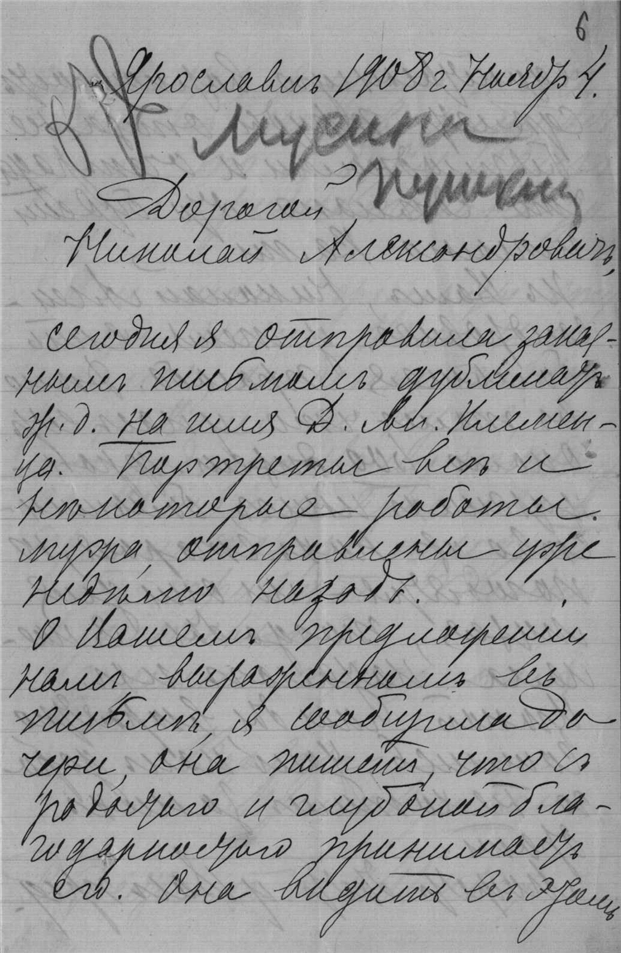 6
Ярославль 1908 г. Ноябр 4.
Мусина
Пушкин
Дорогой
Николай Александровичъ,
сегодня я отправила заказ-
нымъ письмомъ дубликатъ
ж. д. на имя Д. Ал. Клемен-
ца. Портреты всѣ и
нѣкоторые работы
мужа, отправлены уже
недѣлю назадъ.
О Вашемъ предложеніи
намъ выраженномъ въ
письмѣ, я сообщила до
чери, она пишетъ, что съ
радостью и глубокой бла-
годарностью принимаетъ
его. Она видитъ въ этомъ